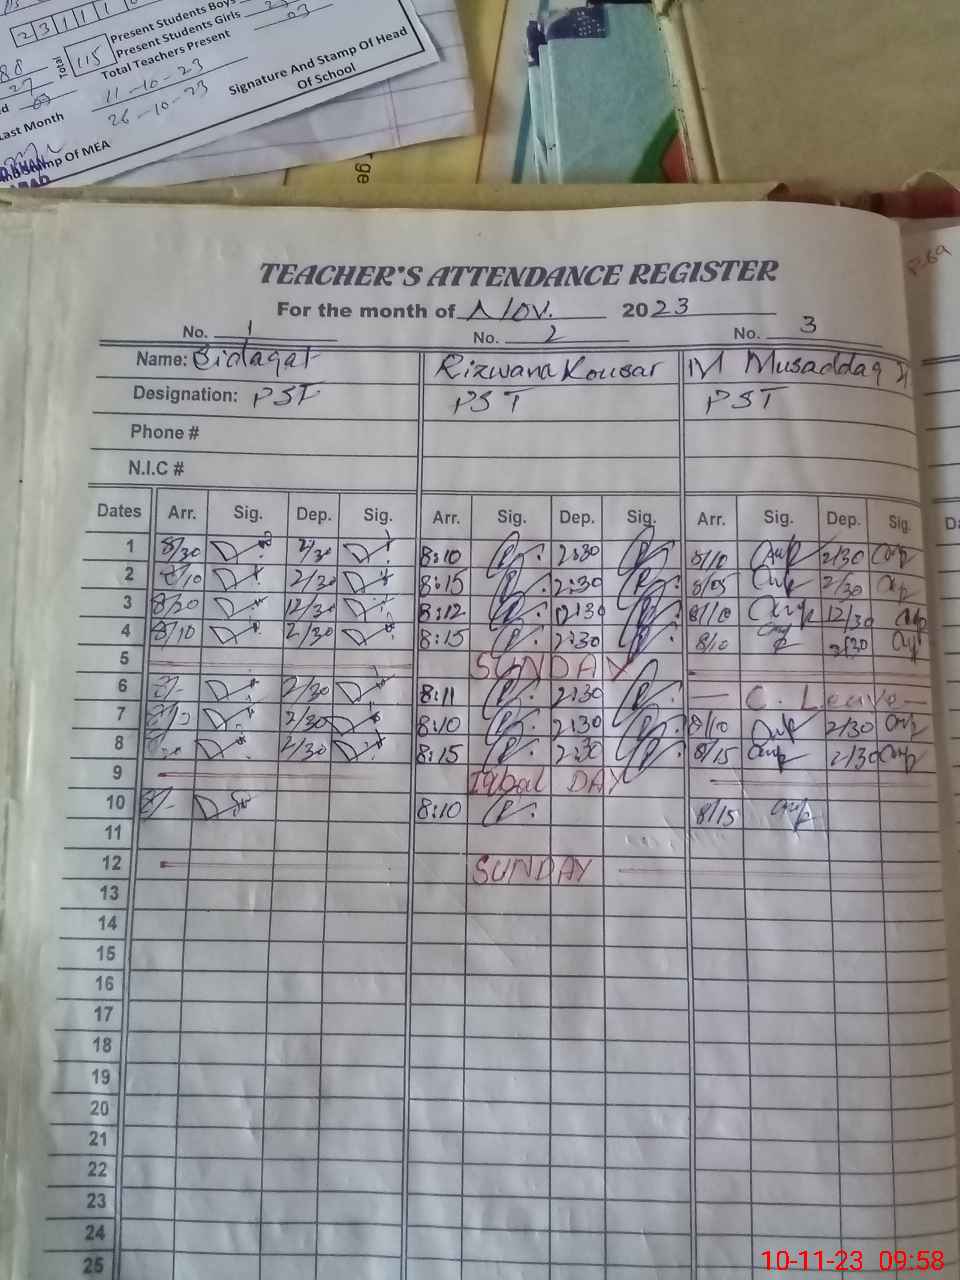 23111
Present Students Boys
Present Students Girls
Total
115
Total Teachers Present 03
88
27
11-10-23
Last Month 26-10-23
Signature And Stamp Of Head
Of School
Stamp Of MEA
KHAN
BAD
rge
TEACHER'S ATTENDANCE REGISTER
For the month of Nov. 2023
No. 1 No. 2 No. 3
Name: Sidaqat Rizwana Kousar M Musaddaq
Designation: PST PST PST
Phone #
N.I.C #
Dates Arr. Sig. Dep. Sig. Arr. Sig. Dep. Sig. Arr. Sig. Dep. Sig.
1 8/30 2/30 8:10 2:30 8/10 2/30
2 8/10 2/30 8:15 2:30 8/05 2/30
3 8/20 12/30 8:12 12:30 8/10 12/30
4 8/10 2/30 8:15 2:30 8/10 2/30
5 SUNDAY
6 2/30 8:11 2:30 C. Leave
7 2/30 8:10 2:30 8/10 2/30
8 2/30 8:15 2:30 8/15 2/30
9 Iqbal DAY
10 8:10 8/15
11
12 SUNDAY
13
14
15
16
17
18
19
20
21
22
23
24
25
10-11-23 09:58